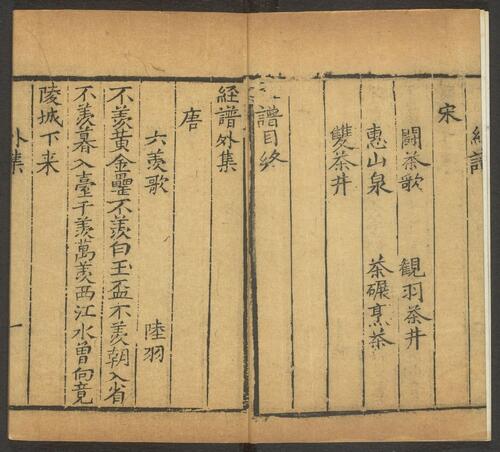 宋
鬪茶歌 観羽茶井
惠山泉 茶碾烹茶
雙茶井
譜目終
經譜外集
唐
六羨歌 陸羽
不羨黃金罍不羨白玉盃不羨朝入省
不羨暮入臺千羨萬羨西江水曽向竟
陵城下来
外集 一